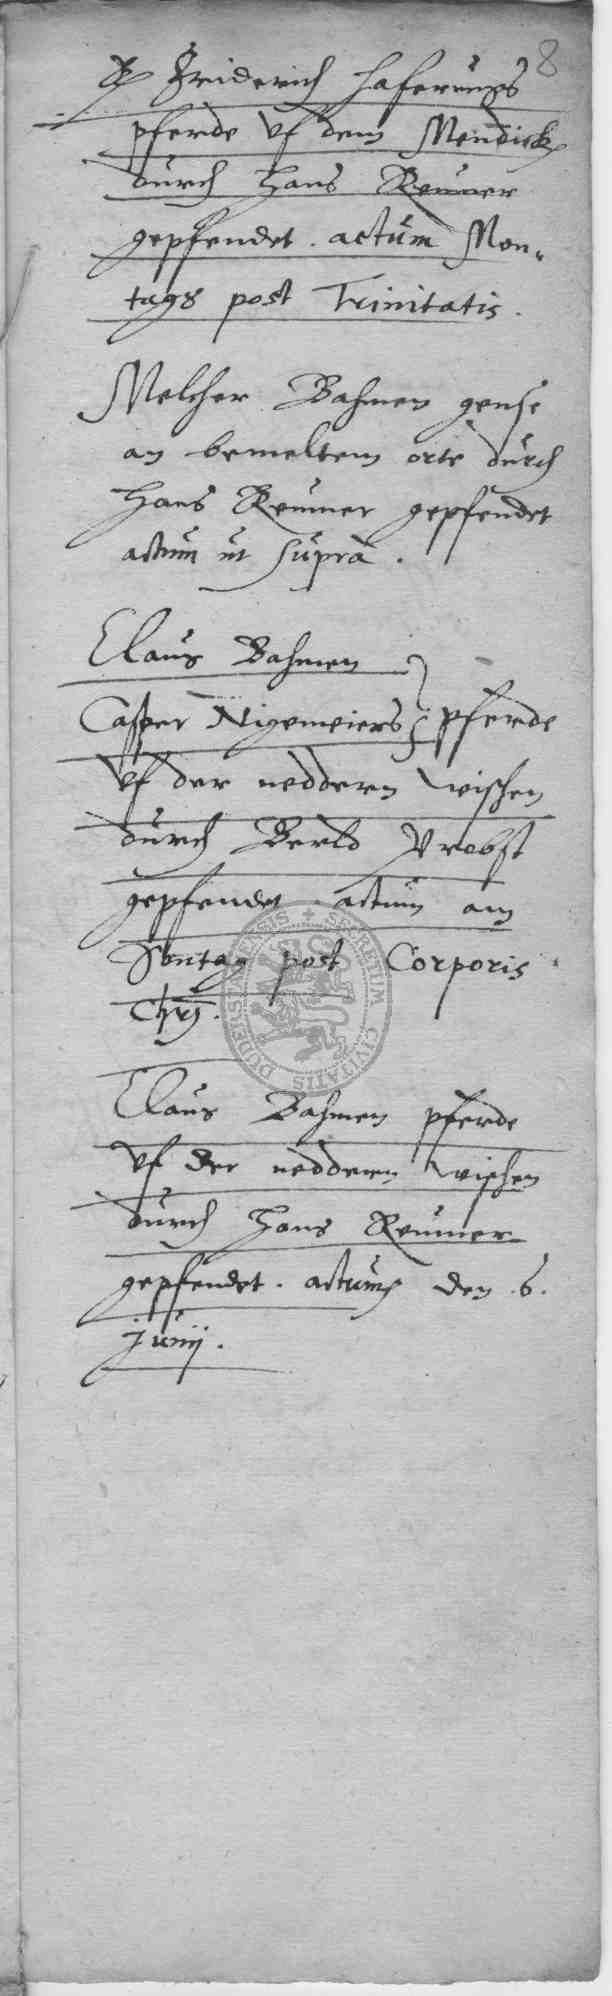 8
Friderich Haferungs
pferde vf dem Mendick
durch Hans Reumer
gepfendet. actum Mon-
tags post Trinitatis.
Melcher Bahmen gense
an bemeltem orte durch
Hans Reumer gepfendet
actum ut supra.
Claus Bahmen
Casper Nigemeiers } pferde
vf der neddern wischen
durch Berld Probst
gepfendet actum am
Sontag post Corporis
Chrj.
Claus Bahmen pferde
vf der neddern wischen
durch Hans Reumer
gepfendet. actum den .6.
Junij.
SECRETUM CIVITATIS DUDERSTADENSIS